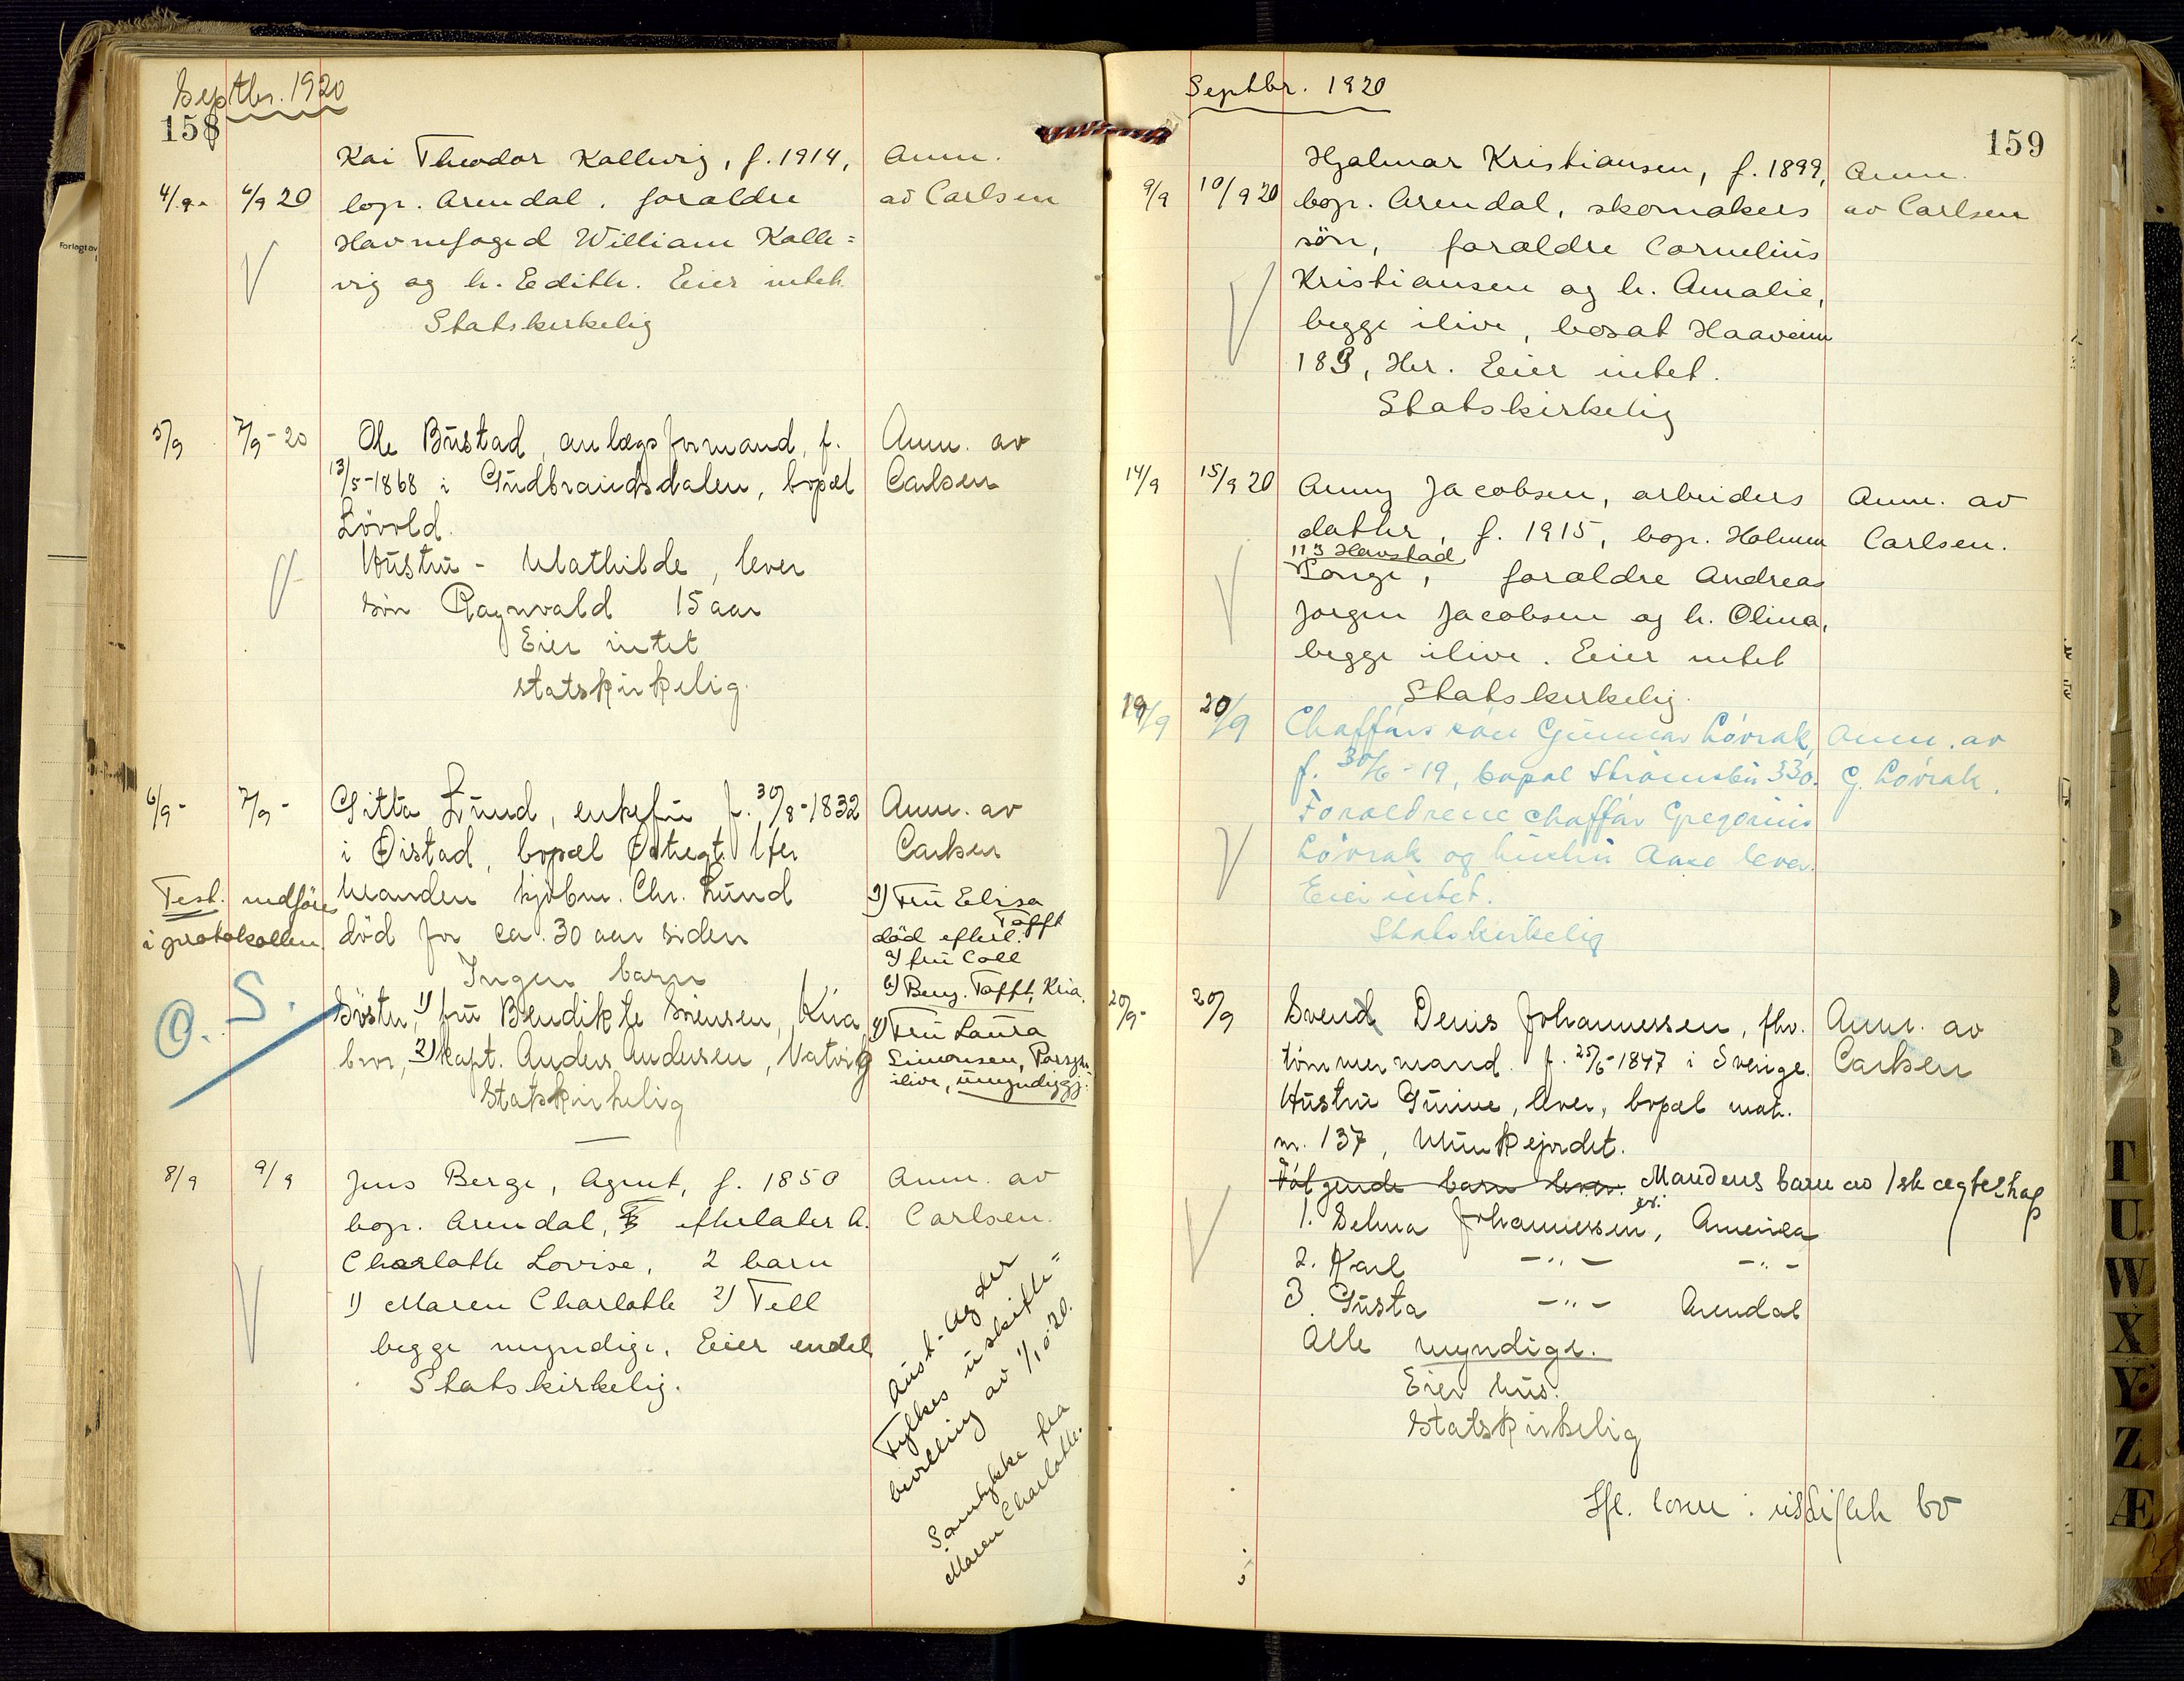 Septbr. 1920
158
Forlagt av
4/9- 6/9 20 Kai Theodor Kallevig, f. 1914, Anm.
bop. Arendal. forældre av Carlsen
Havnefoged William Kalle=
vig og h. Edith. Eier intet
Statskirkelig
5/9 7/9-20 Ole Bustad, anlægsformand, f. Anm. av
13/5-1868 i Gudbrandsdalen, bopæl Carlsen
Løvold.
Hustru - Mathilde, lever
søn Ragnvald 15 aar
Eier intet
statskirkelig.
6/9- 7/9- Gitta Lund, enkefru f. 30/8-1832 Anm. av
i Øistad, bopæl Østregt. Carlsen
Test. indføres manden kjøbm. Chr. Lund
i protokollen død for ca. 30 aar siden
Ingen barn
O. S. Søster, 1) fru Bendikte Sørensen, Kria
bror, 2) kapt. Anders Andersen, Natvig
Statskirkelig
3) Fru Elisa
Tofft
død efterl.
a) fru Coll
b) Berg. Tofft, Kria.
4) Fru Laura
Simonsen, Porsgr.
ilive, umyndiggj.
8/9 9/9 Jens Berge, Agent, f. 1850 Anm. av
bop. Arendal, efterlater h. Carlsen.
Charlotte Lovise, 2 barn
1) Maren Charlotte 2) Tell
begge myndige. Eier endel
Statskirkelig.
Aust-Agder
Fylkes uskifte=
bevilling av 1/10-20.
Samtykke fra
Maren Charlotte.
Septbr. 1920
159
9/9 10/9 20 Hjalmar Kristiansen, f. 1899, Anm.
bop. Arendal, skomakers av Carlsen
søn, forældre Cornelius
Kristiansen og h. Amalie,
begge ilive, bosat Haaveim
189, Her. Eier intet.
Statskirkelig
14/9 15/9 20 Anny Jacobsen, arbeiders Anm. av
datter, f. 1915, bop. Holmen Carlsen.
113 Havstad
Longe, forældre Andreas
Jørgen Jacobsen og h. Olina,
begge ilive. Eier intet
Statskirkelig.
19/9 20/9 Chafførs søn Gunnar Løvrak, Anm. av
f. 30/6-19, bopæl Strømsbu 330. G. Løvrak.
Forældrene chaffør Gregorius
Løvrak og hustru Aase lever.
Eier intet.
Statskirkelig
20/9- 20/9 Svend Denis Johannessen, fhv. Anm. av
tømmermand. f. 25/6-1847 i Sverige. Carlsen
Hustru Gunine, lever, bopæl matr.
nr. 137, Munkejordet.
Følgende barn lever. Mandens barn av 1ste egteskap
er:
1. Selma Johannessen, Amerika
2. Karl -"- -"-
3. Gusta -"- Arendal
Alle myndige.
Eier hus.
Statskirkelig
Hfl. lover: uskiftet bo
P
Q
R
T
U
W
X
Y
Z
Æ